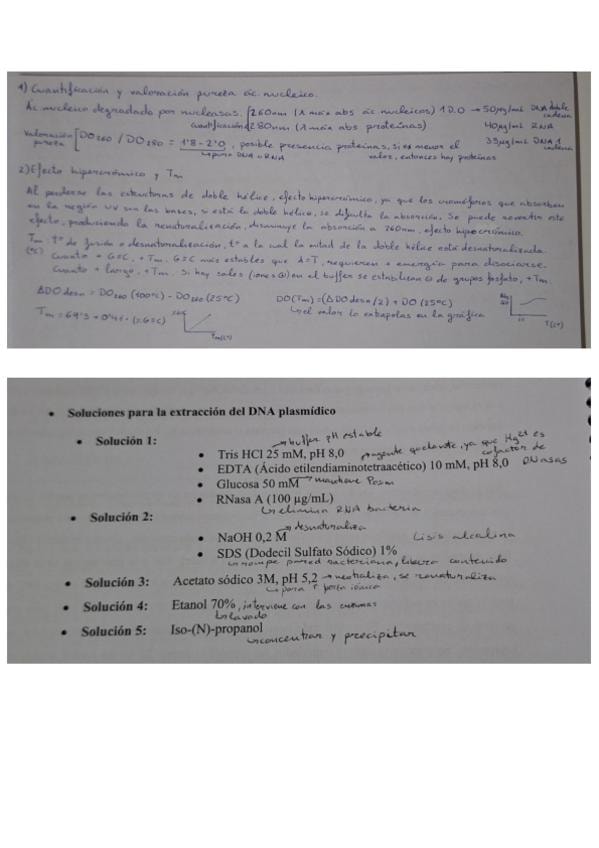 1) Cuantificación y valoración pureza ác. nucleico.
Ác. nucleico degradado por nucleasas. [260nm (λ máx abs ác. nucleicos) 1 D.O → 50µg/mL DNA doble cadena
cuantificación [280nm (λ máx abs proteínas) 40µg/mL RNA
valoración pureza [DO260 / DO280 = 1'8 - 2'0, posible presencia proteínas, si es menor el 33µg/mL DNA 1 cadena
↳ puro DNA o RNA valor, entonces hay proteínas
2) Efecto hipercrómico y Tm
Al perderse las estructuras de doble hélice, efecto hipercrómico, ya que los cromóforos que absorben
en la región UV son las bases, si está la doble hélice, se dificulta la absorción. Se puede revertir este
efecto, produciendo la renaturalización, disminuye la absorción a 260nm, efecto hipocrómico.
Tm: tª de fusión o desnaturalización, tª a la cual la mitad de la doble hélice está desnaturalizada.
(ºC) Cuanto + G≡C, + Tm. G≡C más estables que A=T, requieren + energía para disociarse.
Cuanto + largo, + Tm. Si hay sales (iones ⊕) en el buffer se estabilizan ⊖ de grupos fosfato, + Tm.
ΔDO desn = DO260 (100ºC) - DO260 (25ºC) DO(Tm) = (ΔDO desn/2) + DO (25ºC)
Tm = 69'3 + 0'41 · (% G≡C) ↳ el valor lo extrapolas en la gráfica
Tm(ºC) T(ºC)
• Soluciones para la extracción del DNA plasmídico
• Solución 1: → buffer pH estable
• Tris HCl 25 mM, pH 8,0 → agente quelante, ya que Mg2+ es cofactor de DNasas
• EDTA (Ácido etilendiaminotetraacético) 10 mM, pH 8,0
• Glucosa 50 mM → mantiene Posm
• RNasa A (100 µg/mL)
↳ elimina RNA bacteria
• Solución 2:
• NaOH 0,2 M → desnaturaliza Lisis alcalina
• SDS (Dodecil Sulfato Sódico) 1%
↳ rompe pared bacteriana, libera contenido
• Solución 3: Acetato sódico 3M, pH 5,2 → neutraliza, se renaturaliza
↳ para ↑ fuerza iónica
• Solución 4: Etanol 70%, interviene con las enzimas
↳ lavado
• Solución 5: Iso-(N)-propanol
↳ concentrar y precipitar